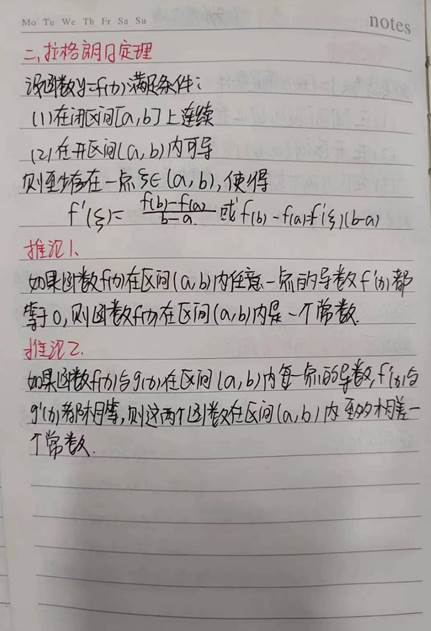 Mo Tu We Th Fr Sa Su
notes
二、拉格朗日定理
设函数y=f(x)满足条件:
(1)在闭区间[a,b]上连续
(2)在开区间(a,b)内可导
则至少存在一点ξ∈(a,b),使得
f'(ξ)= f(b)-f(a)/b-a 或 f(b)-f(a)=f'(ξ)(b-a)
推论1.
如果函数f(x)在区间(a,b)内任意一点的导数f'(x)都
等于0,则函数f(x)在区间(a,b)内是一个常数.
推论2.
如果函数f(x)与g(x)在区间(a,b)内每一点的导数,f'(x)与
g'(x)都相等,则这两个函数在区间(a,b)内至多相差一
个常数.